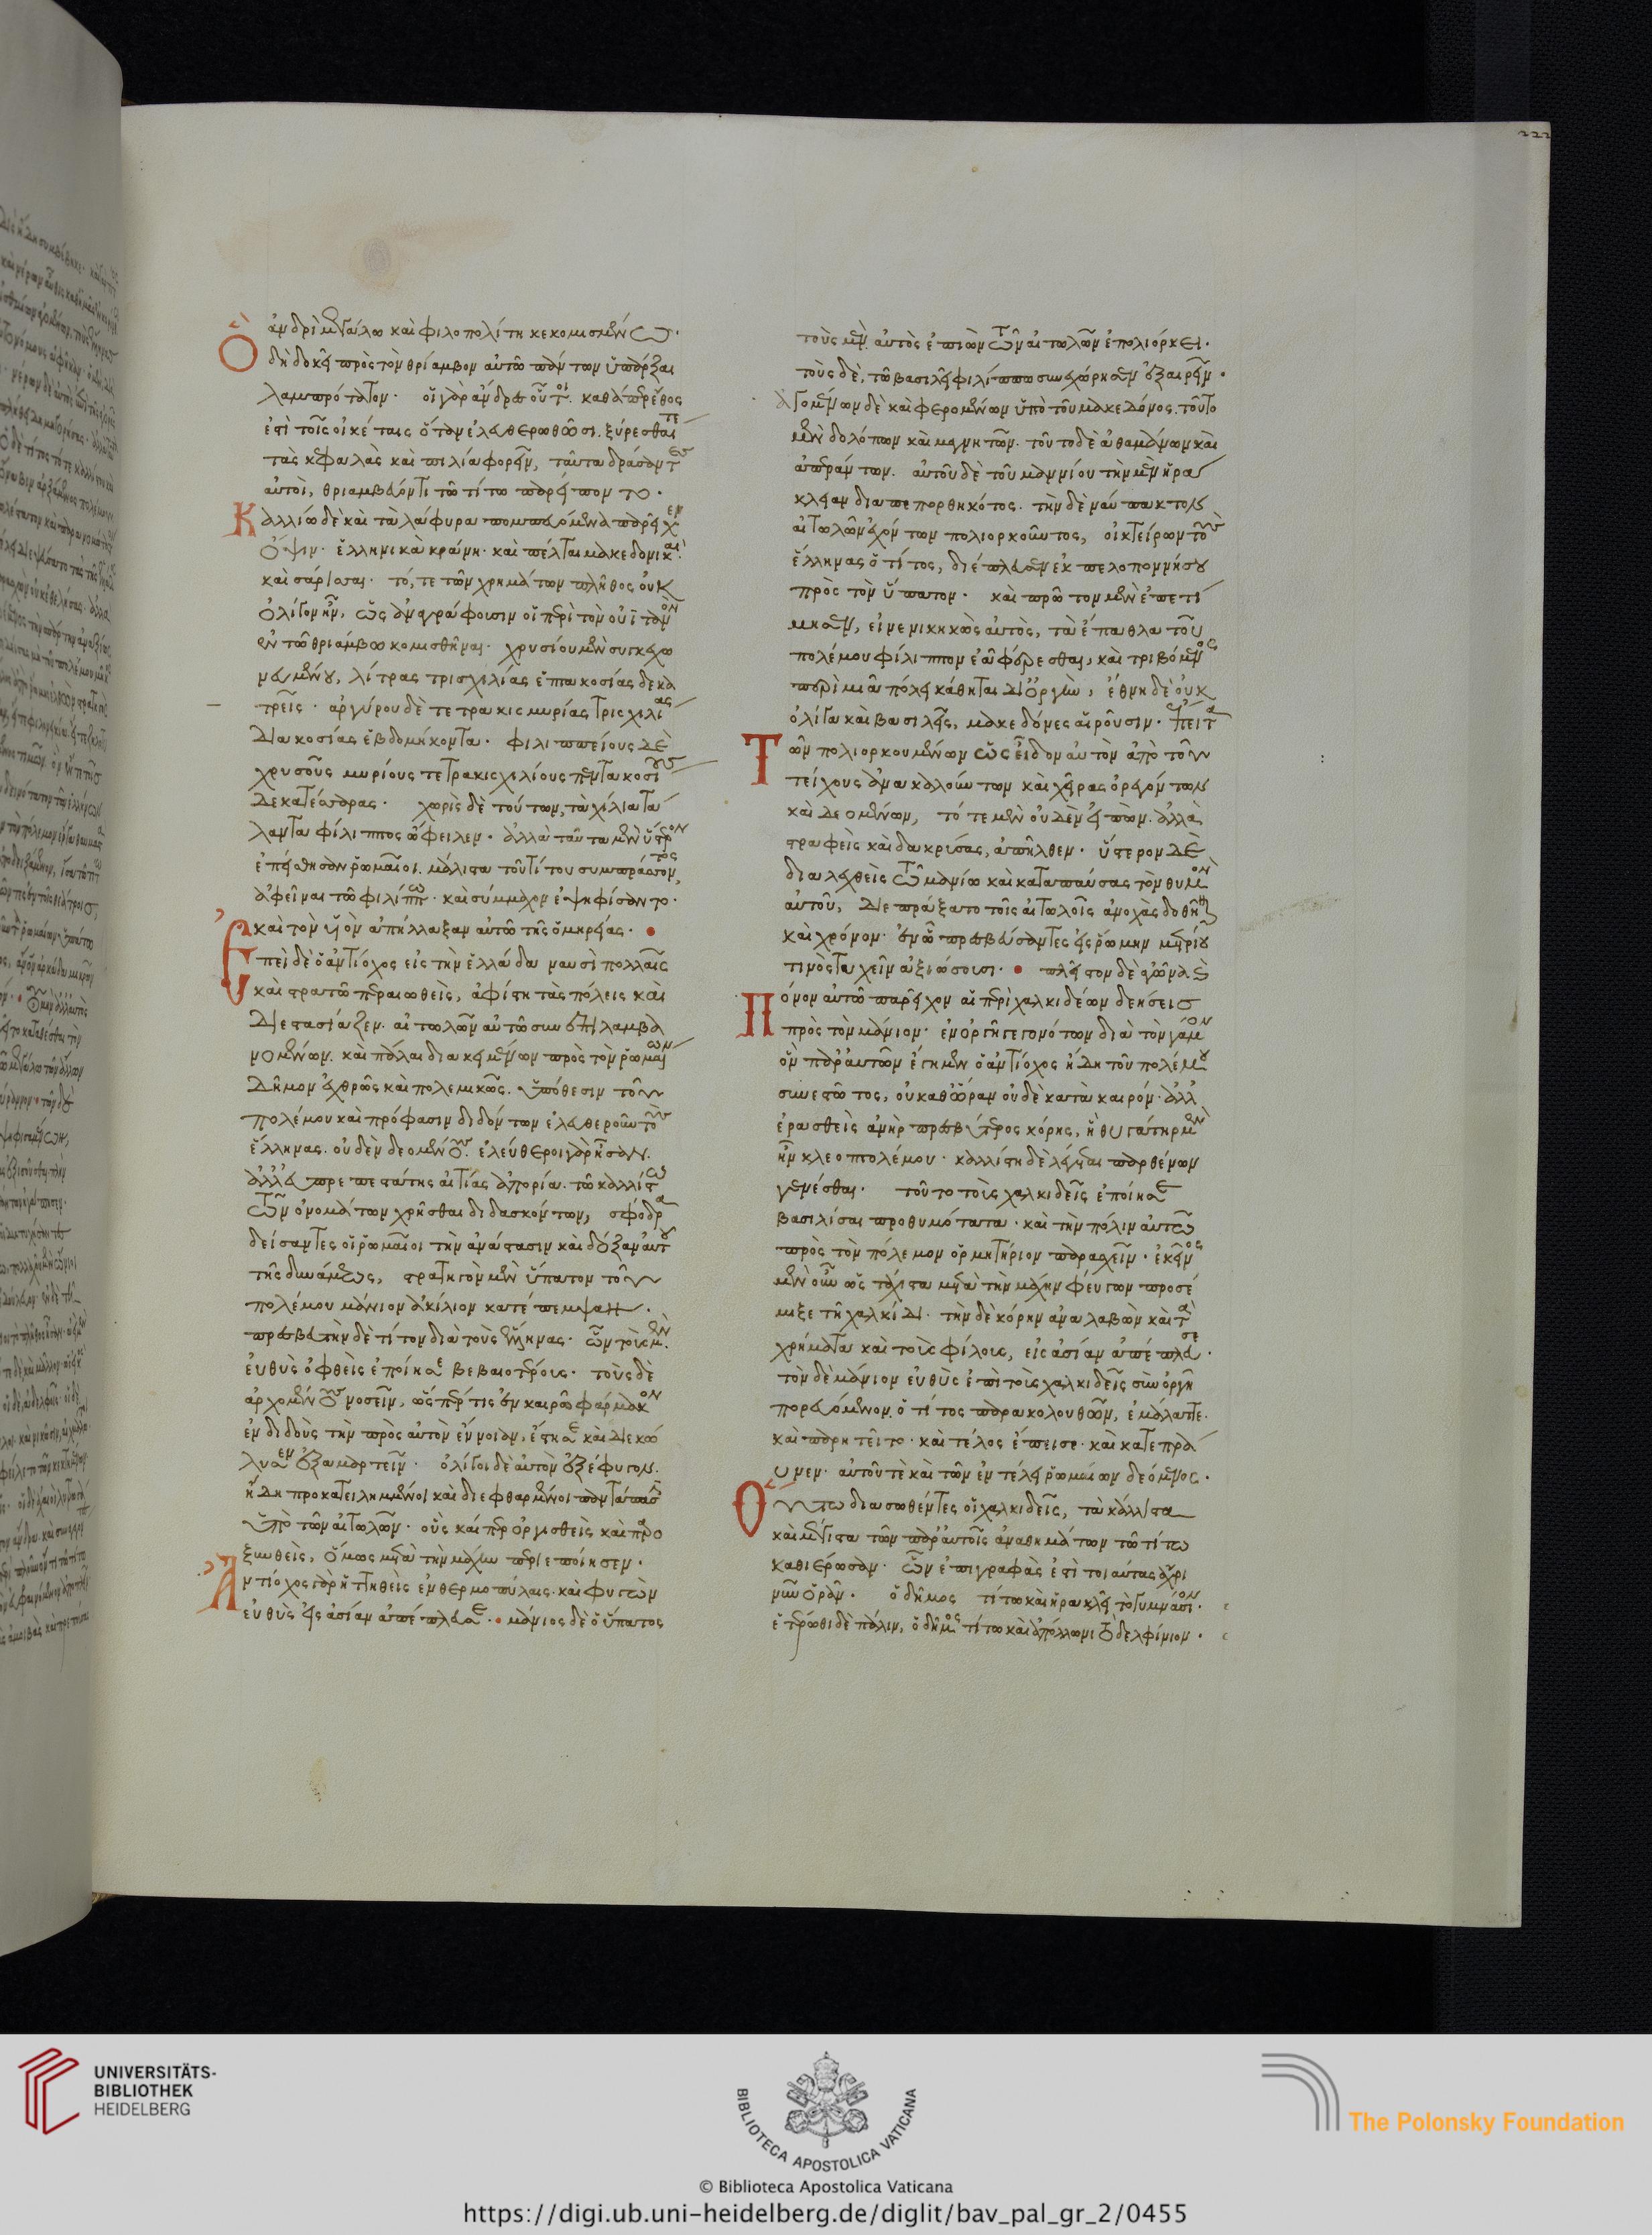 ἀνδρὶ μεγάλω καὶ φιλοπολίτη κεκομισμένω.
Ὃ δὴ δοκεῖ πρὸς τὸν θρίαμβον αὐτῶ πάντων ὑπάρξαι
λαμπρότατον. οἱ γὰρ ἄνδρες οὗτοι. καθάπερ ἔθος
ἐστὶ τοῖς οἰκέταις ὅταν ἐλευθερωθῶσι. ξύρεσθαί τε
τὰς κεφαλὰς καὶ πιλία φορεῖν, ταῦτα δράσαντες
αὐτοὶ, θριαμβεύοντι τῶ τίτω παρείποντο.
Καλλίω δὲ καὶ τὰ λάφυρα πομπευόμενα παρεῖχεν
ὄψιν. ἑλληνικὰ κράνη. καὶ πέλται μακεδονικαὶ.
καὶ σάρισσαι. τό, τε τῶν χρημάτων πλῆθος οὐκ
ὀλίγον ἦν, ὡς ἀναγράφουσιν οἱ περὶ τὸν οὐϊτανὸν
ἐν τῶ θριάμβω κομισθῆναι. χρυσίου μὲν συγκεχω
νευμένου, λίτρας τρισχιλίας ἑπτακοσίας δεκα
τρεῖς. ἀργύρου δὲ τετρακισμυρίας τρισχιλίας
διακοσίας ἑβδομήκοντα. φιλιππείους δὲ
χρυσοῦς μυρίους τετρακισχιλίους πεντακοσίους
δεκατέσσαρας. χωρὶς δὲ τούτων, τὰ χίλια τά
λαντα φίλιππος ὤφειλεν. ἀλλὰ ταῦτα μὲν ὕστερον
ἐπείσθησαν ῥωμαῖοι. μάλιστα τοῦ τίτου συμπράσσοντος,
ἀφεῖναι τῶ φιλίππω. καὶ σύμμαχον ἐψηφίσαντο.
καὶ τὸν υἱὸν ἀπήλλαξαν αὐτῶ τῆς ὁμηρείας.
Ἐπεὶ δὲ ὁ ἀντίοχος εἰς τὴν ἑλλάδα ναυσὶ πολλαῖς
καὶ στρατῶ περαιωθεὶς, ἀφίστη τὰς πόλεις καὶ
διεστασίαζεν. αἰτωλῶν αὐτῶ συνεπιλαμβα
νομένων. καὶ πάλαι διακειμένων πρὸς τὸν ῥωμαίων
δῆμον ἐχθρῶς καὶ πολεμικῶς. ὑπόθεσιν τοῦ
πολέμου καὶ πρόφασιν διδόντων ἐλευθεροῦν τοὺς
ἕλληνας. οὐδὲν δεομένους. ἐλεύθεροι γὰρ ἦσαν.
ἀλλ' εὐπρεπεστάτης αἰτίας ἀπορία. τῶ καλλίστω
τῶν ὀνομάτων χρῆσθαι διδασκόντων, σφόδρα
δείσαντες οἱ ῥωμαῖοι τὴν ἀνάστασιν καὶ δόξαν αὐτοῦ
τῆς δυνάμεως, στρατηγὸν μὲν ὕπατον τοῦ
πολέμου μάνιον ἀκίλιον κατέπεμψαν.
πρεσβευτὴν δὲ τίτον διὰ τοὺς ἕλληνας. ὧν τοὺς μὲν.
εὐθὺς ὀφθεὶς ἐποίησε βεβαιοτέρους. τοὺς δὲ
ἀρχομένους νοσεῖν, ὥσπερ τις ἐν καιρῶ φάρμακον
ἐνδιδοὺς τὴν πρὸς αὐτὸν εὔνοιαν, ἔστησε καὶ διεκώ
λυσεν ἐξαμαρτεῖν. ὀλίγοι δὲ αὐτὸν ἐξέφυγον.
ἤδη προκατειλημμένοι καὶ διεφθαρμένοι παντάπασιν
ὑπὸ τῶν αἰτωλῶν. οὓς καίπερ ὀργισθεὶς καὶ παρο
ξυνθεὶς, ὅμως μετὰ τὴν μάχην περιεποίησεν.
Ἀντίοχος γὰρ ἡττηθεὶς ἐν θερμοπύλαις. καὶ φυγὼν
εὐθὺς εἰς ἀσίαν ἀπέπλευσε. μάνιος δὲ ὁ ὕπατος
τοὺς μὲν. αὐτὸς ἐπιὼν τῶν αἰτωλῶν ἐπολιόρκει.
τοὺς δὲ, τῶ βασιλεῖ φιλίππω συνεχώρησεν ἐξαιρεῖν.
ἀγομένων δὲ καὶ φερομένων ὑπὸ τοῦ μακεδόνος. τοῦτο
μὲν δολόπων καὶ μαγνητῶν. τοῦτο δὲ ἀθαμάνων καὶ
ἀπεράντων. αὐτοῦ δὲ τοῦ μαννίου τὴν μὲν ἡρά
κλειαν διαπεπορθηκότος. τὴν δὲ ναύπακτον
αἰτωλῶν ἐχόντων πολιορκοῦντος, οἰκτείρων τοὺς
ἕλληνας ὁ τίτος, διέπλευσεν ἐκ πελοποννήσου
πρὸς τὸν ὕπατον. καὶ πρῶτον μὲν ἐπετί
μησεν, εἰ νενικηκὼς αὐτὸς, τὰ ἔπαθλα τοῦ
πολέμου φίλιππον ἐᾶ φέρεσθαι, καὶ τριβόμενος
περὶ μιᾶ πόλει κάθηται δι' ὀργὴν, ἔθνη δὲ οὐκ
ὀλίγα καὶ βασιλείας, μακεδόνες αἱροῦσιν. ἔπειτα
Τῶν πολιορκουμένων ὡς εἶδον αὐτὸν ἀπὸ τοῦ
τείχους ἀνακαλούντων καὶ χεῖρας ὀρεγόντων
καὶ δεομένων, τότε μὲν οὐδὲν εἰπὼν. ἀλλὰ
στραφεὶς καὶ δακρύσας, ἀπῆλθεν. ὕστερον δὲ
διαλεχθεὶς τῶ μανίω καὶ καταπαύσας τὸν θυμὸν
αὐτοῦ, διεπράξατο τοῖς αἰτωλοῖς ἀνοχὰς δοθῆναι
καὶ χρόνον. ἐν ὧ πρεσβεύσαντες εἰς ῥώμην μετρίου
τινὸς τυχεῖν ἀξιώσουσι. πλεῖστον δὲ ἀγῶνα καὶ
Πόνον αὐτῶ παρεῖχον αἱ περὶ χαλκιδέων δεήσεις
πρὸς τὸν μάνιον. ἐν ὀργῆ γεγονότων διὰ τὸν γάμον
ὃν παρ' αὐτῶν ἔγημεν ὁ ἀντίοχος ἤδη τοῦ πολέμου
συνεστῶτος, οὐ καθ' ὥραν οὐδὲ κατὰ καιρόν. ἀλλ'
ἐρασθεὶς ἀνὴρ πρεσβύτερος κόρης, ἣ θυγάτηρ μὲν
ἦν κλεοπτολέμου. καλλίστη δὲ λέγεται παρθένων
γενέσθαι. τοῦτο τοὺς χαλκιδεῖς ἐποίησε
βασιλίσαι προθυμότατα. καὶ τὴν πόλιν αὐτῶ
πρὸς τὸν πόλεμον ὁρμητήριον παρασχεῖν. ἐκεῖνος
μὲν οὖν ὡς τάχιστα μετὰ τὴν μάχην φεύγων προσέ
μιξε τῆ χαλκίδι. τὴν δὲ κόρην ἀναλαβὼν καὶ τὰ
χρήματα καὶ τοὺς φίλους, εἰς ἀσίαν ἀπέπλευσε.
τὸν δὲ μάνιον εὐθὺς ἐπὶ τοὺς χαλκιδεῖς σὺν ὀργῆ
πορευόμενον. ὁ τίτος παρακολουθῶν, ἐμάλαττε.
καὶ παρητεῖτο. καὶ τέλος ἔπεισε. καὶ κατεπρά
υνεν. αὐτοῦ τὲ καὶ τῶν ἐν τέλει ῥωμαίων δεόμενος.
Οὕτω διασωθέντες οἱ χαλκιδεῖς, τὰ κάλλιστα
καὶ μέγιστα τῶν παρ' αὐτοῖς ἀναθημάτων τῶ τίτω
καθιέρωσαν. ὧν ἐπιγραφὰς ἔστι τοιαύτας ἄχρι
νῦν ὁρᾶν. ὁ δῆμος τίτω καὶ ἡρακλεῖ τὸ γυμνάσιον.
ἑτέρωθι δὲ πάλιν, ὁ δῆμος τίτω καὶ ἀπόλλωνι τὸ δελφίνιον.
222
UNIVERSITÄTS-
BIBLIOTHEK
HEIDELBERG
BIBLIOTECA APOSTOLICA VATICANA
The Polonsky Foundation
© Biblioteca Apostolica Vaticana
https://digi.ub.uni-heidelberg.de/diglit/bav_pal_gr_2/0455